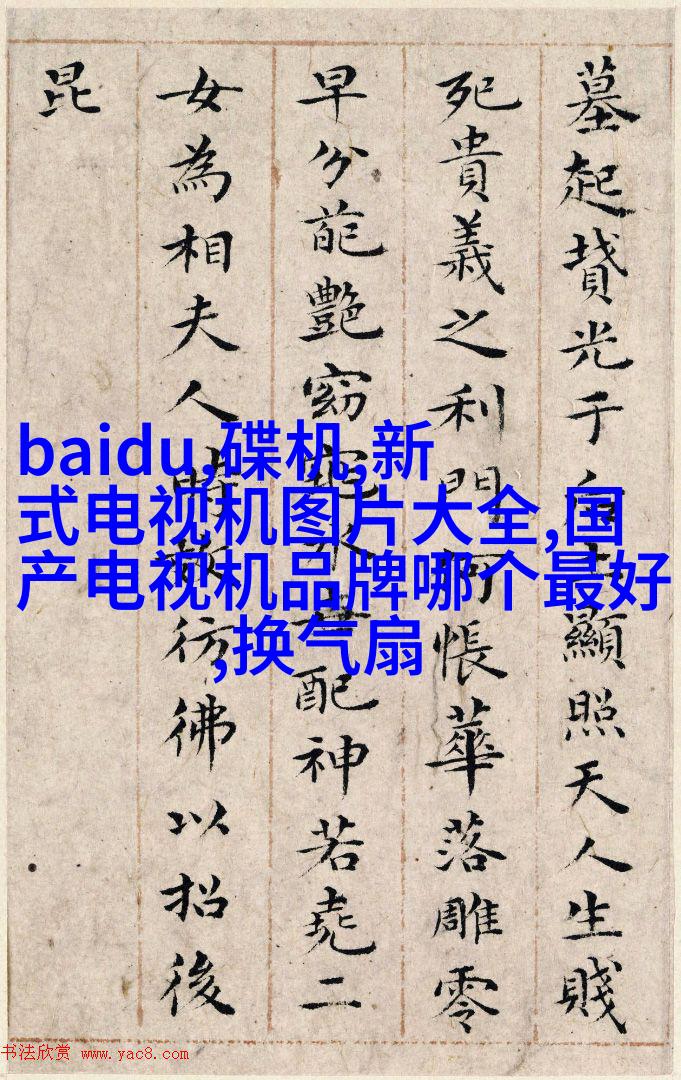 墓起墳光于后土顯照天人生賤
死貴義之利門何悵華落雕零
早分葩艷窈窕永世配神若堯二
女為相夫人時效彷彿以招後
昆
baidu,碟机,新
式电视机图片大全,国
产电视机品牌哪个最好
,换气扇
书法欣赏 www.yac8.com